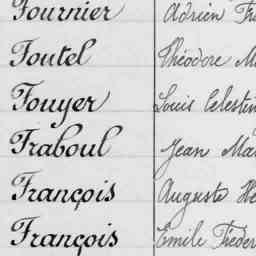 Fournier Adrien
Foutel Théodore
Fouyer Louis Célestin
Fraboul Jean
François Auguste
François Emile